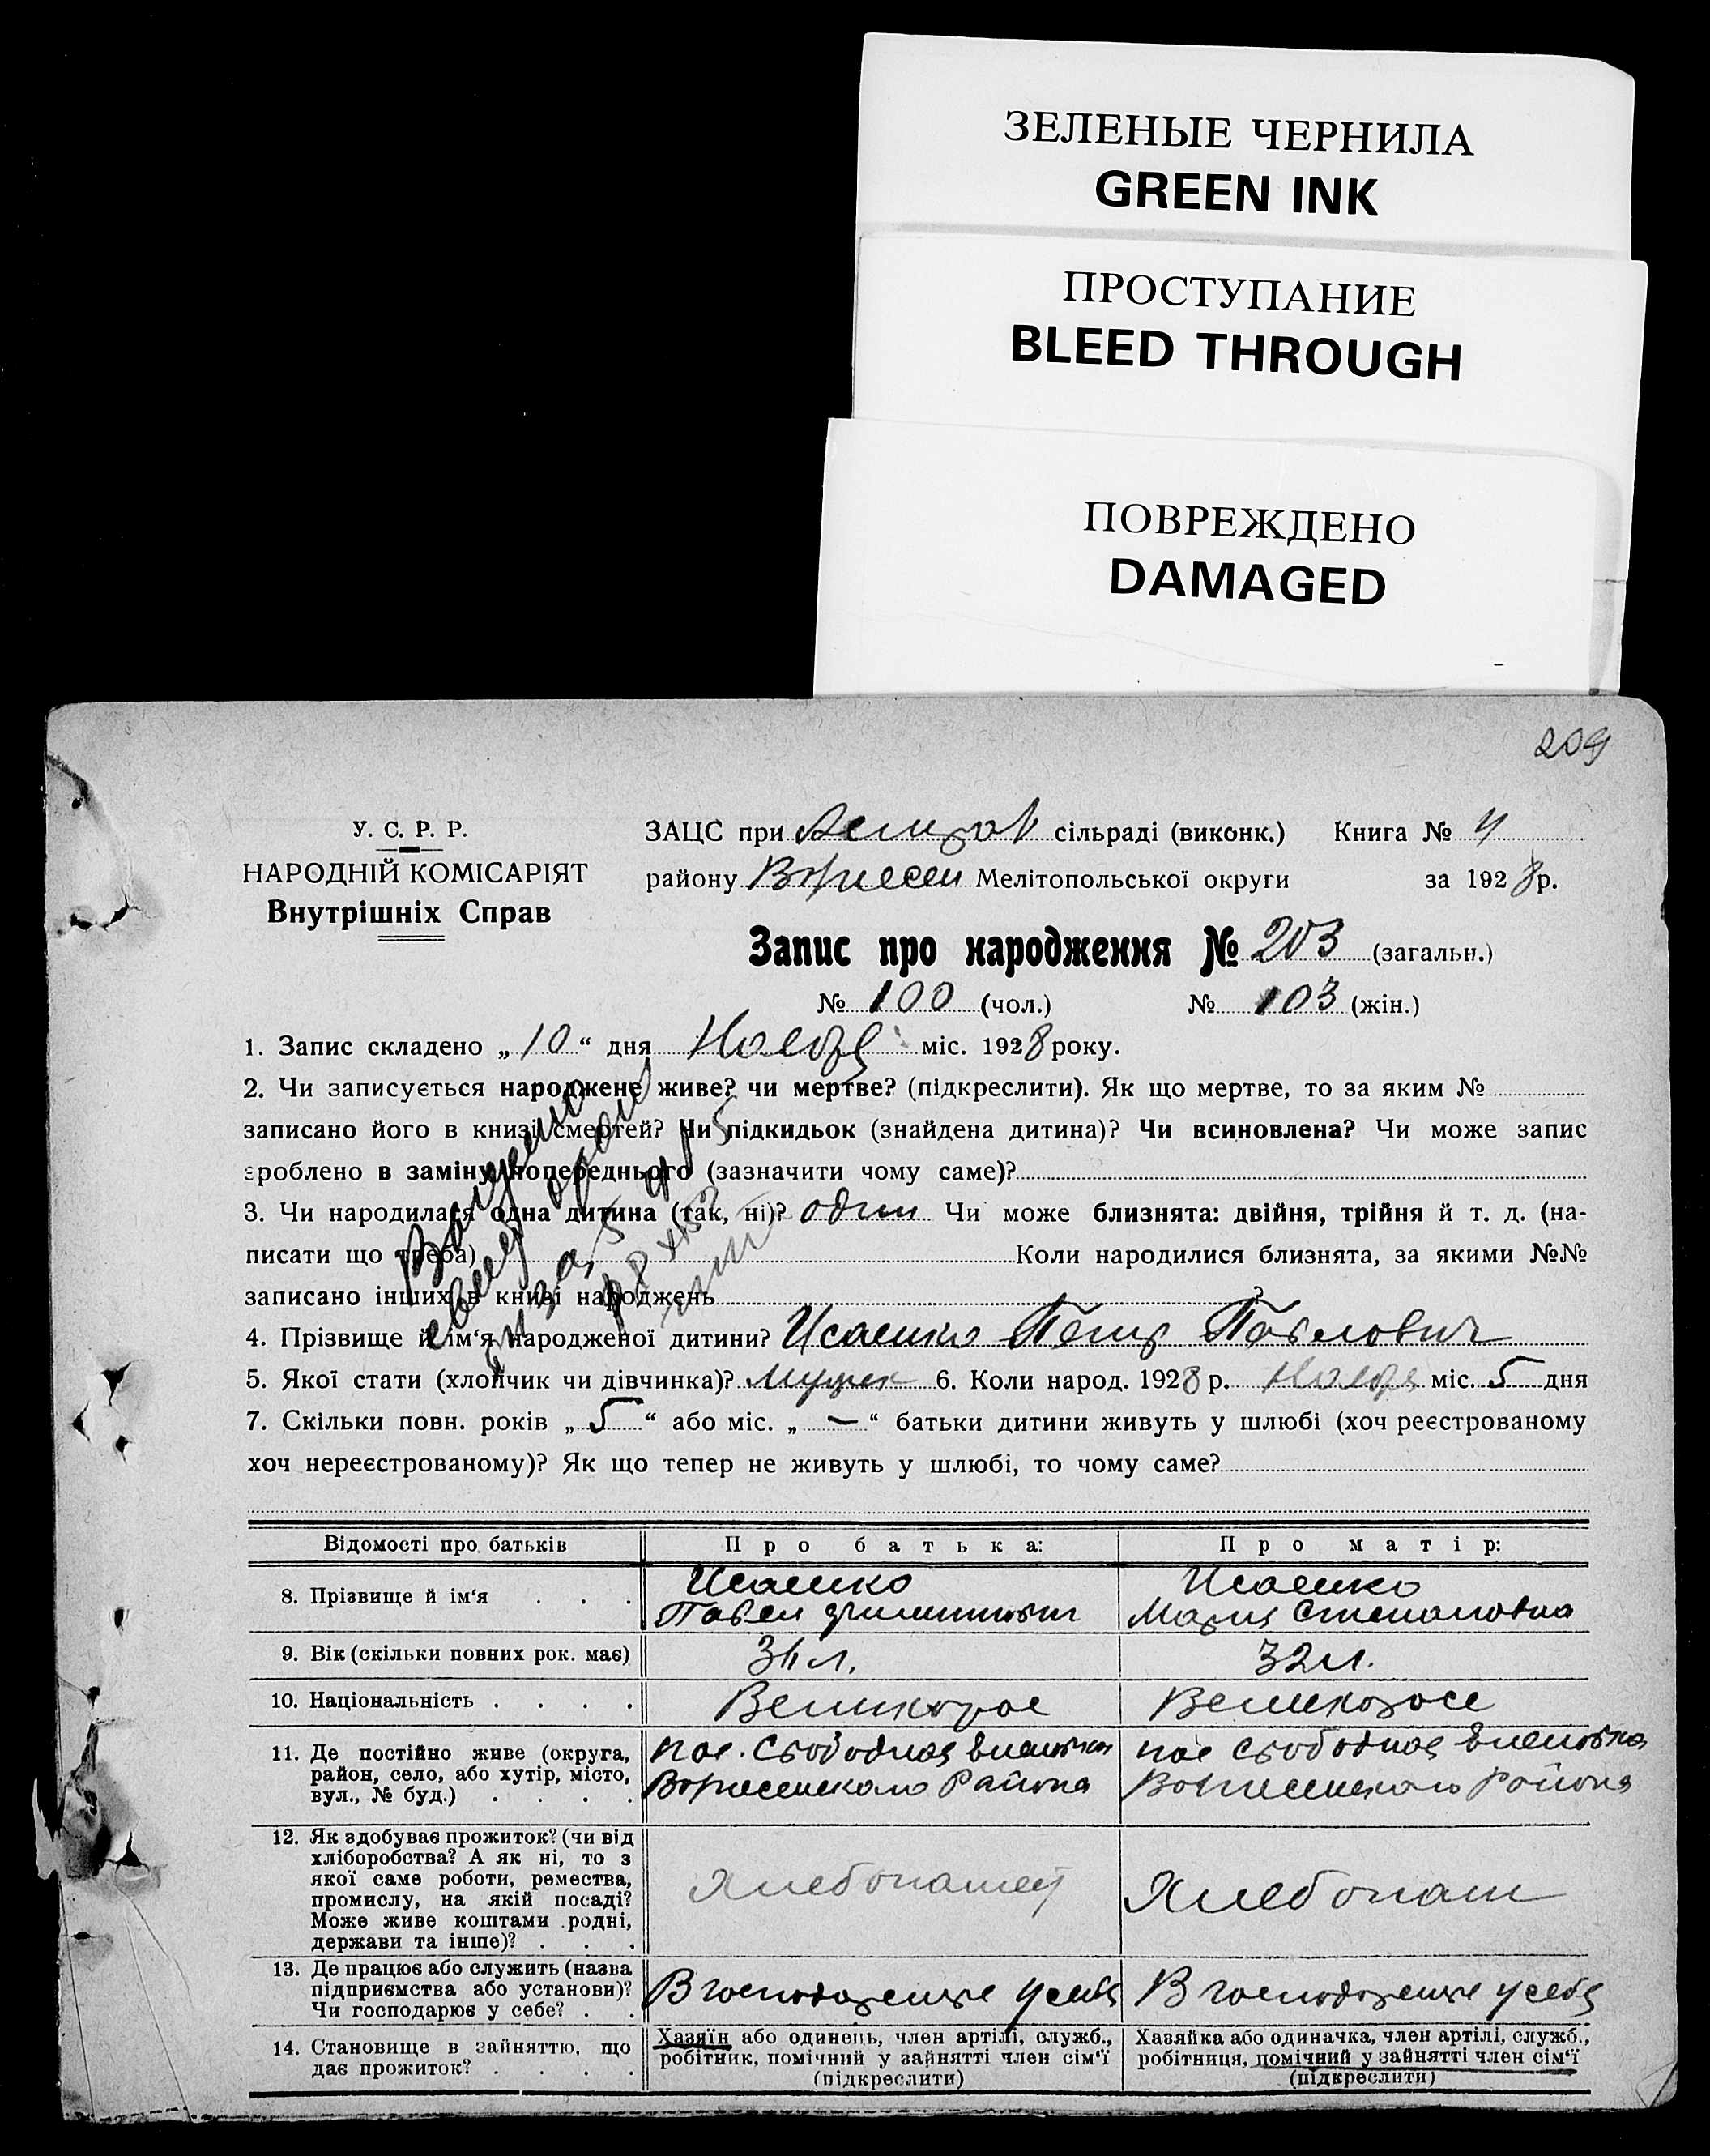 ЗЕЛЕНЫЕ ЧЕРНИЛА
GREEN INK
ПРОСТУПАНИЕ
BLEED THROUGH
ПОВРЕЖДЕНО
DAMAGED
209
У. С. Р. Р.
НАРОДНІЙ КОМІСАРІЯТ
Внутрішніх Справ
ЗАЦС при сільраді (виконк.) Книга № 4
району Мелітопольської округи за 1928 р.
Запис про народження № 203 (загальн.)
№ 100 (чол.) № 103 (жін.)
1. Запис складено „10“ дня Ноября міс. 1928 року.
2. Чи записується народжене живе? чи мертве? (підкреслити). Як що мертве, то за яким №
записано його в книзі смертей? Чи підкидьок (знайдена дитина)? Чи всиновлена? Чи може запис
зроблено в заміну попереднього (зазначити чому саме)?
3. Чи народилася одна дитина (так, ні)? один Чи може близнята: двійня, трійня й т. д. (на-
писати що треба) Коли народилися близнята, за якими №№
записано інших в книзі народжень
4. Прізвище й ім‘я народженої дитини? Исаенко Петр Павлович
5. Якої стати (хлопчик чи дівчинка)? Мужск 6. Коли народ. 1928 р. Ноября міс. 5 дня
7. Скільки повн. років „5“ або міс. „—“ батьки дитини живуть у шлюбі (хоч реєстрованому
хоч нереєстрованому)? Як що тепер не живуть у шлюбі, то чому саме?
Відомості про батьків Про батька: Про матір:
8. Прізвище й ім‘я . . . Исаенко Исаенко
Павел Мария Степановна
9. Вік (скільки повних рок. має) л. 32 л.
10. Національність . . . . Великорос Великорос
11. Де постійно живе (округа, пос. Свободная пос Свободная
район, село, або хутір, місто, Вознесенского Района Вознесенского Района
вул., № буд.) . . . .
12. Як здобуває прожиток? (чи від
хліборобства? А як ні, то з
якої саме роботи, ремества, Хлебопашец Хлебопаш
промислу, на якій посаді?
Може живе коштами родні,
держави та інше)? . . .
13. Де працює або служить (назва
підприємства або установи)? В господарстве у себя В господарстве у себя
Чи господарює у себе? . .
14. Становище в зайняттю, що
дає прожиток? . . . .
Хазяїн або одинець, член артілі, служб.,
робітник, помічний у зайнятті член сім‘ї
(підкреслити)
Хазяйка або одиначка, член артілі, служб.,
робітниця, помічний у зайнятті член сім‘ї
(підкреслити)